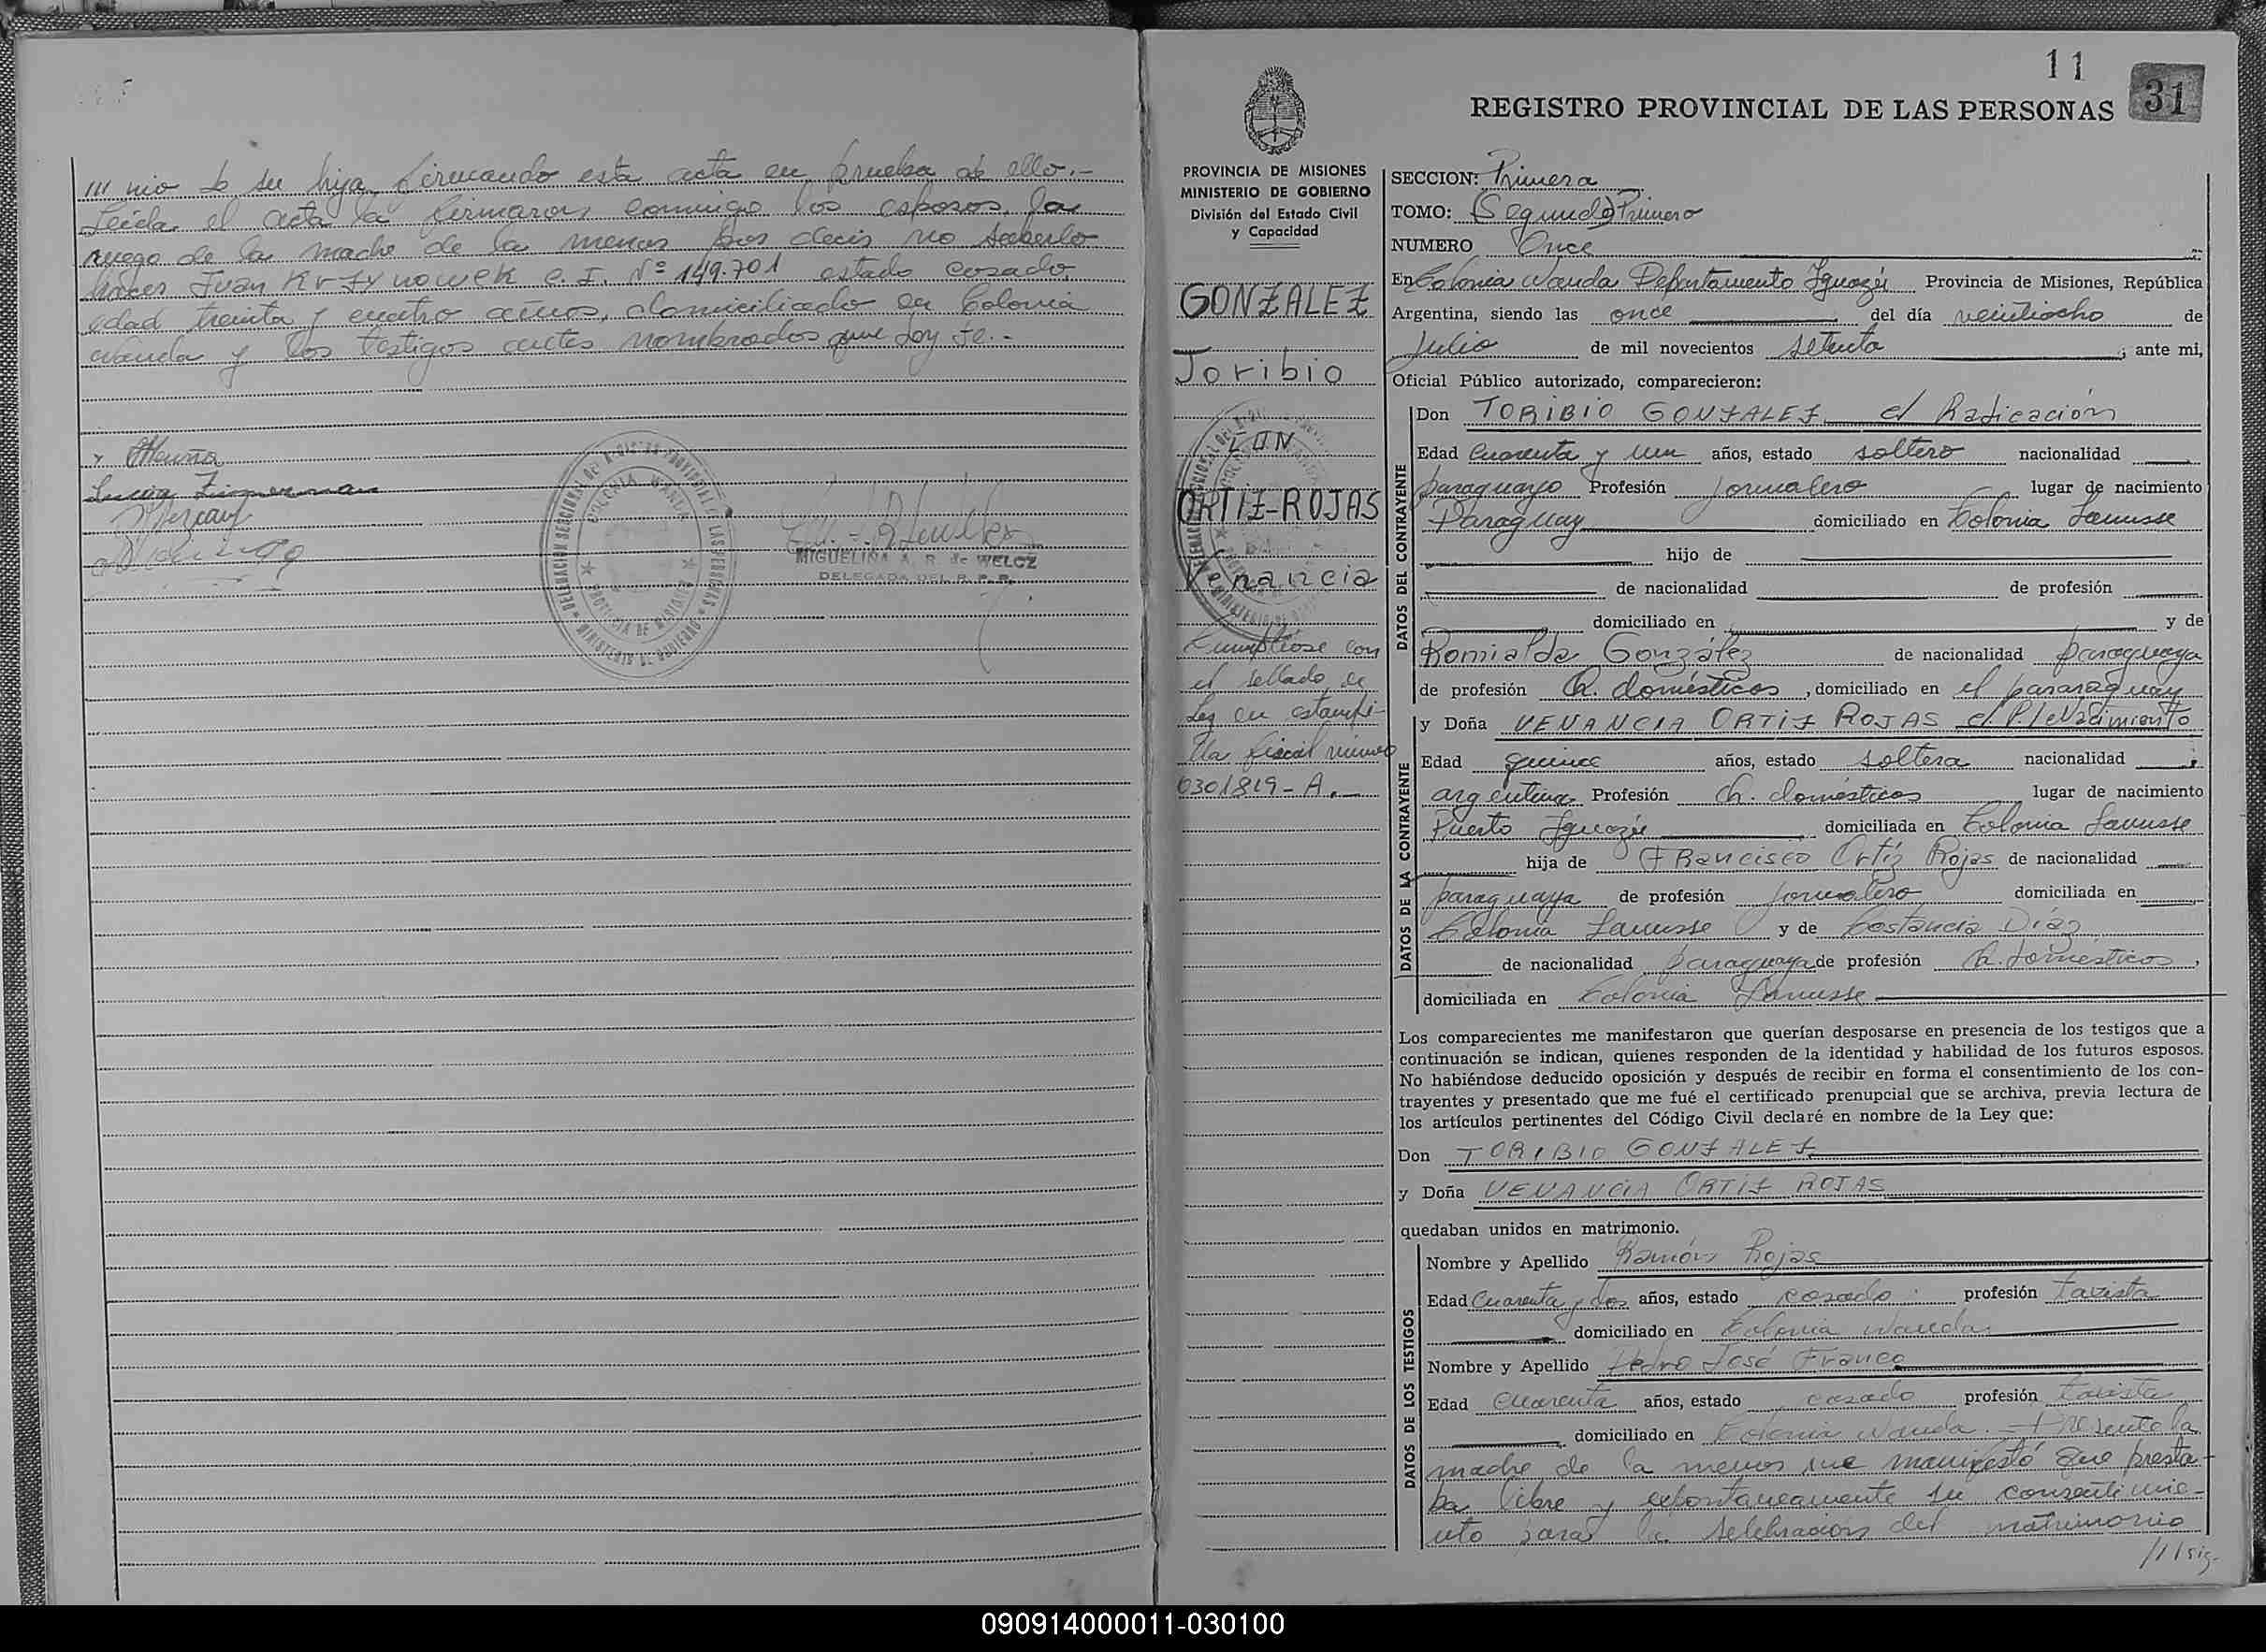 /// nio de su hija, firmando esta acta en prueba de ello.-
Leída el acta la firmaron conmigo los esposos, a
ruego de la madre de la menor por decir no saberlo
hacer Juan Krzynowek c.I. Nº 149.701 estado casado
edad treinta y cuatro años, domiciliado en Colonia
Wanda y los testigos antes nombrados que doy fe.-
MIGUELINA A. R. de WELCZ
DELEGADA DEL R. P. P.
COLONIA WANDA
PROVINCIA DE MISIONES
11
31
REGISTRO PROVINCIAL DE LAS PERSONAS
PROVINCIA DE MISIONES
MINISTERIO DE GOBIERNO
División del Estado Civil
y Capacidad
GONZALEZ
Toribio
CON
ORTIZ-ROJAS
Venancia
Cumplióse con
el sellado de
Ley en estampi-
lla fiscal número
0301819-A.-
SECCION: Primera
TOMO: (Segundo) Primero
NUMERO Once
En Colonia Wanda Departamento Iguazú Provincia de Misiones, República
Argentina, siendo las once del día veintiocho de
Julio de mil novecientos setenta ; ante mi,
Oficial Público autorizado, comparecieron:
DATOS DEL CONTRAYENTE
Don TORIBIO GONZALEZ c/ Radicación
Edad Cuarenta y un años, estado soltero nacionalidad
paraguayo Profesión jornalero lugar de nacimiento
Paraguay domiciliado en Colonia Lanusse
hijo de
de nacionalidad de profesión
domiciliado en y de
Romialda González de nacionalidad paraguaya
de profesión Q. domésticos , domiciliado en el pararaguay
DATOS DE LA CONTRAYENTE
y Doña VENANCIA ORTIZ ROJAS c/. P./ de Nacimiento
Edad quince años, estado soltera nacionalidad
argentina Profesión Q. domésticos lugar de nacimiento
Puerto Iguazú domiciliada en Colonia Lanusse
hija de Francisco Ortíz Rojas de nacionalidad
paraguaya de profesión jornalero domiciliada en
Colonia Lanusse y de Costancia Díaz
de nacionalidad paraguaya de profesión Q. domésticos ,
domiciliada en Colonia Lanusse
Los comparecientes me manifestaron que querían desposarse en presencia de los testigos que a
continuación se indican, quienes responden de la identidad y habilidad de los futuros esposos.
No habiéndose deducido oposición y después de recibir en forma el consentimiento de los con-
trayentes y presentado que me fué el certificado prenupcial que se archiva, previa lectura de
los artículos pertinentes del Código Civil declaré en nombre de la Ley que:
Don TORIBIO GONZALEZ
y Doña VENANCIA ORTIZ ROJAS
quedaban unidos en matrimonio.
DATOS DE LOS TESTIGOS
Nombre y Apellido Ramón Rojas
Edad Cuarenta y dos años, estado casado profesión taxista
domiciliado en Colonia Wanda
Nombre y Apellido Pedro José Franco
Edad Cuarenta años, estado casado profesión taxista
domiciliado en Colonia Wanda.- Presente la
madre de la menor me manifestó que presta-
ba libre y expontaneamente su consentimie-
nto para la selebracion del matrimonio
///sig.
090914000011-030100